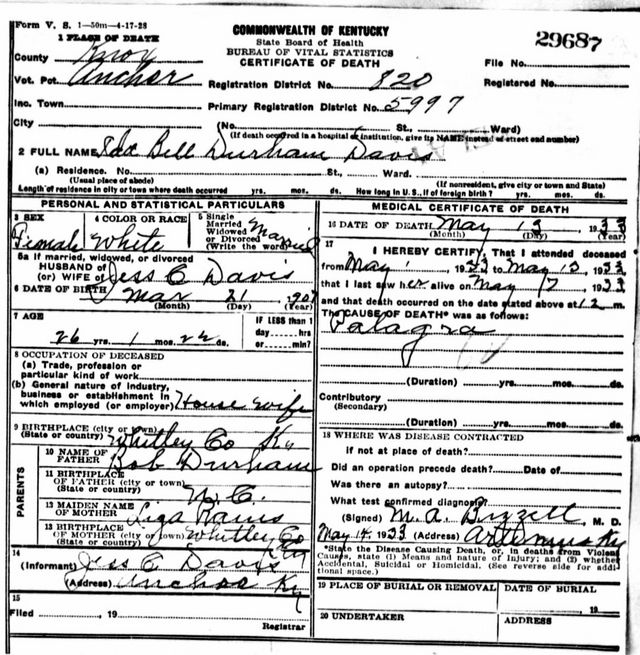 Form V. S. 1-50m-4-17-28
COMMONWEALTH OF KENTUCKY
State Board of Health
BUREAU OF VITAL STATISTICS
CERTIFICATE OF DEATH
29687
1 PLACE OF DEATH
County Knox
File No.
Vot. Pct. Anchor
Registration District No. 820
Registered No.
Inc. Town
Primary Registration District No. 5997
City (No. St., Ward)
(If death occurred in a hospital or institution, give its NAME instead of street and number)
2 FULL NAME Bell Durham Davis
(a) Residence. No. St., Ward.
(Usual place of abode) (If nonresident, give city or town and State)
Length of residence in city or town where death occurred yrs. mos. ds. How long in U. S., if of foreign birth? yrs. mos. ds.
PERSONAL AND STATISTICAL PARTICULARS
3 SEX Female
4 COLOR OR RACE White
5 Single Married Widowed or Divorced (Write the word) Married
5a If married, widowed, or divorced
HUSBAND of
(or) WIFE of Jess C Davis
6 DATE OF BIRTH Mar 21 1907
(Month) (Day) (Year)
7 AGE 26 yrs. 1 mos. 22 ds.
IF LESS than 1 day----hrs or----min?
8 OCCUPATION OF DECEASED
(a) Trade, profession or particular kind of work
(b) General nature of industry, business or establishment in which employed (or employer) House wife
9 BIRTHPLACE (city or town)
(State or country) Whitley Co Ky
PARENTS
10 NAME OF FATHER Bob Durham
11 BIRTHPLACE OF FATHER (city or town)
(State or country) N. C.
12 MAIDEN NAME OF MOTHER
13 BIRTHPLACE OF MOTHER (city or town) Whitley Co
(State or country) Ky
14
(Informant) Jess C Davis
(Address) Anchor Ky
15
Filed , 19
Registrar
MEDICAL CERTIFICATE OF DEATH
16 DATE OF DEATH May 13 1933
(Month) (Day) (Year)
17 I HEREBY CERTIFY, That I attended deceased
from May 1, 1933 to May 13, 1933
that I last saw her alive on May 1933
and that death occurred on the date stated above at 12 m.
The CAUSE OF DEATH* was as follows:
Palagra
(Duration) yrs. mos. ds.
Contributory
(Secondary)
(Duration) yrs. mos. ds.
18 WHERE WAS DISEASE CONTRACTED
If not at place of death?
Did an operation precede death? Date of
Was there an autopsy?
What test confirmed diagnosis?
(Signed) M. A. Bizzell, M. D.
May 14, 1933 (Address) Artemus Ky
*State the Disease Causing Death, or, in deaths from Violent Causes, state (1) Means and nature of Injury; and (2) whether Accidental, Suicidal or Homicidal. (See reverse side for additional space.)
19 PLACE OF BURIAL OR REMOVAL
DATE OF BURIAL
, 19
20 UNDERTAKER
ADDRESS